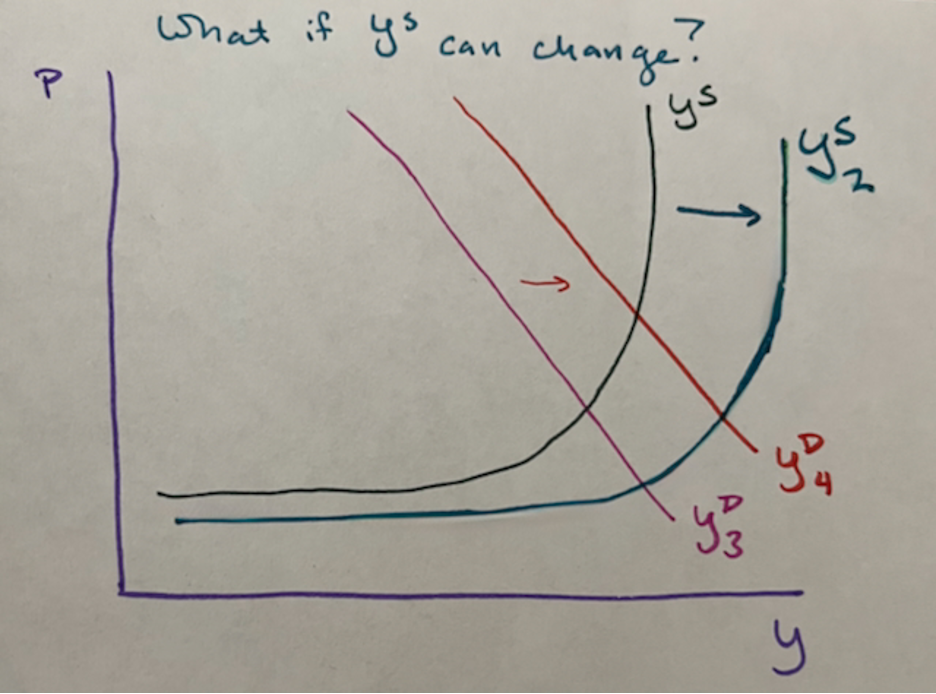 What if yˢ can change?
P
yˢ
yˢ₂
yᴰ₄
yᴰ₃
y